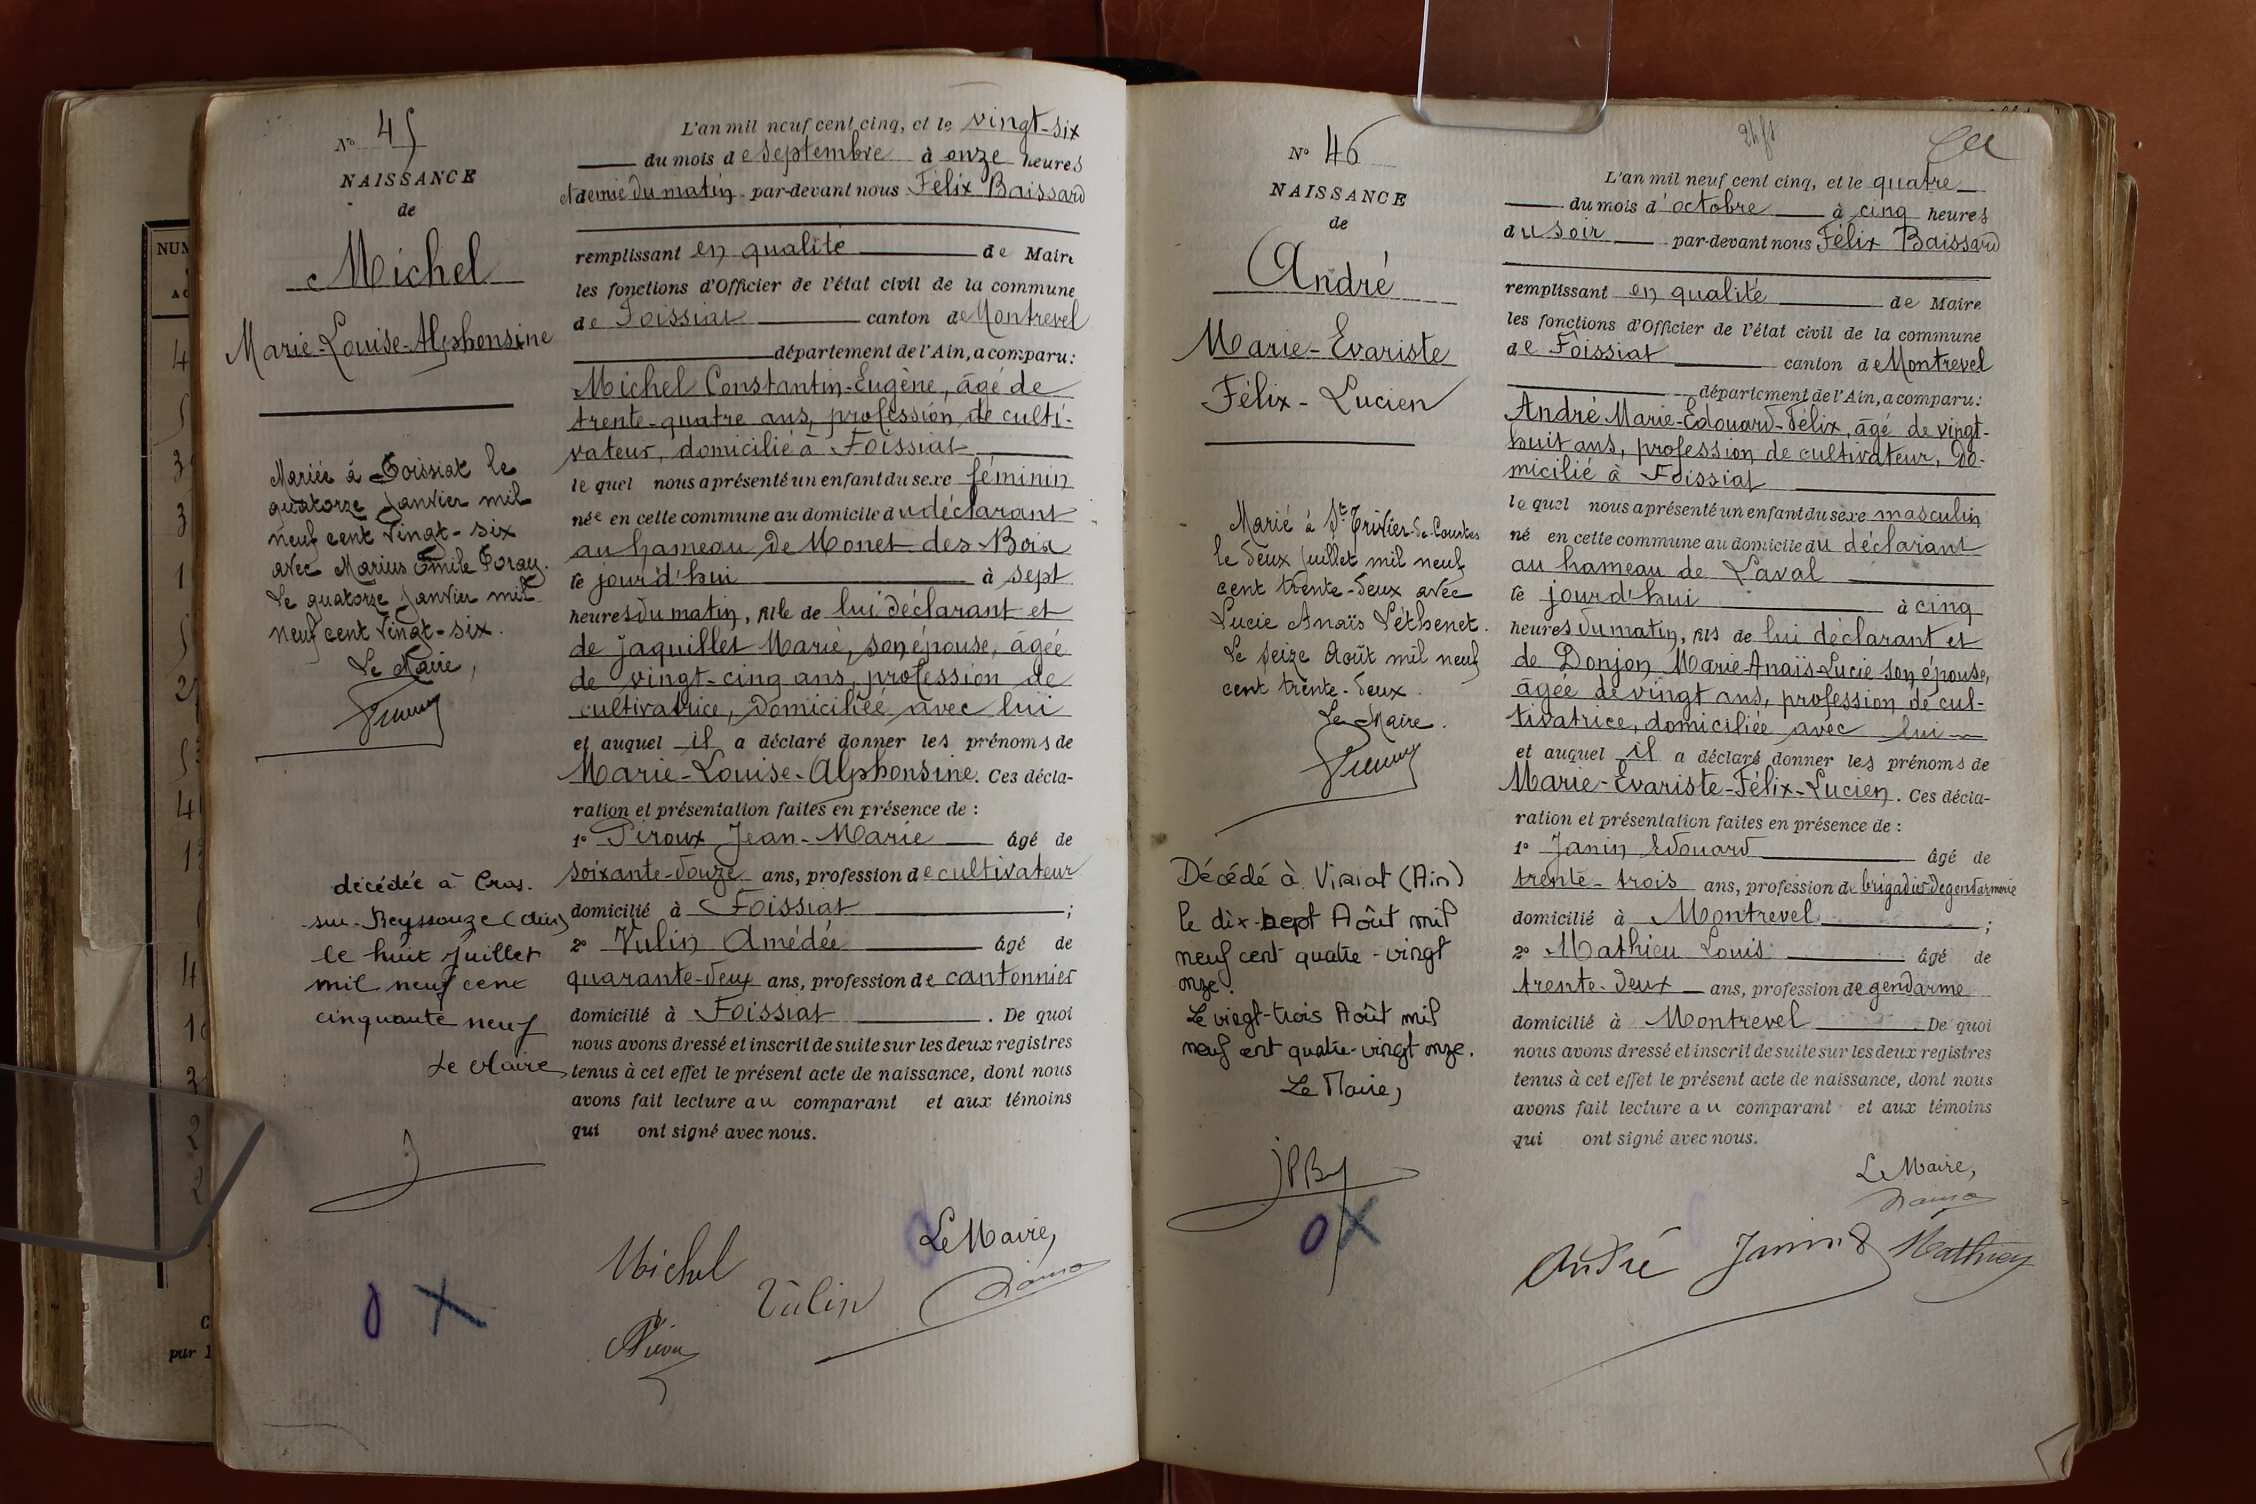 NUM
N° 45
NAISSANCE
de
Michel
Marie-Louise-Alphonsine
Mariée à Foissiat le
quatorze Janvier mil
neuf cent vingt-six
avec Marius Emile Poray.
Le quatorze Janvier mil
neuf cent vingt-six.
Le Maire,
décédée à Cras.
sur-Reyssouze (Ain)
le huit Juillet
mil neuf cent
cinquante neuf
Le Maire
L'an mil neuf cent cinq, et le vingt-six
du mois de septembre à onze heures
et demie du matin par-devant nous Félix Baissard
remplissant en qualité de Maire
les fonctions d'Officier de l'état civil de la commune
de Foissiat canton de Montrevel
département de l'Ain, a comparu:
Michel Constantin-Eugène, âgé de
trente-quatre ans, profession de culti-
vateur, domicilié à Foissiat
lequel nous a présenté un enfant du sexe féminin
née en cette commune au domicile du déclarant
au hameau de Monet des Bois
le jourd'hui à sept
heures du matin, fille de lui déclarant et
de Jaquillet Marie, son épouse, âgée
de vingt-cinq ans, profession de
cultivatrice, domiciliée avec lui
et auquel il a déclaré donner les prénoms de
Marie-Louise-Alphonsine. Ces décla-
ration et présentation faites en présence de :
1° Piroux Jean-Marie âgé de
soixante-douze ans, profession de cultivateur
domicilié à Foissiat ;
2° Vulin Amédée âgé de
quarante-deux ans, profession de cantonnier
domicilié à Foissiat . De quoi
nous avons dressé et inscrit de suite sur les deux registres
tenus à cet effet le présent acte de naissance, dont nous
avons fait lecture au comparant et aux témoins
qui ont signé avec nous.
Le Maire,
Michel
Vulin
N° 46
NAISSANCE
de
André
Marie-Evariste
Félix-Lucien
Marié à St Trivier-de-Courtes
le deux Juillet mil neuf
cent trente-deux avec
Lucie Anaïs Péthenet.
Le seize Août mil neuf
cent trente-deux.
Le Maire.
Décédé à Viriat (Ain)
le dix-sept Août mil
neuf cent quatre-vingt
onze.
Le vingt-trois Août mil
neuf cent quatre-vingt onze.
Le Maire,
L'an mil neuf cent cinq, et le quatre
du mois d'octobre à cinq heures
du soir par-devant nous Félix Baissard
remplissant en qualité de Maire
les fonctions d'Officier de l'état civil de la commune
de Foissiat canton de Montrevel
département de l'Ain, a comparu:
André Marie-Edouard-Félix, âgé de vingt-
huit ans, profession de cultivateur, do-
micilié à Foissiat
lequel nous a présenté un enfant du sexe masculin
né en cette commune au domicile du déclarant
au hameau de Laval
le jourd'hui à cinq
heures du matin, fils de lui déclarant et
de Donjon Marie-Anaïs-Lucie son épouse,
âgée de vingt ans, profession de cul-
tivatrice, domiciliée avec lui
et auquel il a déclaré donner les prénoms de
Marie-Evariste-Félix-Lucien. Ces décla-
ration et présentation faites en présence de :
1° Janin Edouard âgé de
trente-trois ans, profession de brigadier de gendarmerie
domicilié à Montrevel ;
2° Mathieu Louis âgé de
trente-deux ans, profession de gendarme
domicilié à Montrevel . De quoi
nous avons dressé et inscrit de suite sur les deux registres
tenus à cet effet le présent acte de naissance, dont nous
avons fait lecture au comparant et aux témoins
qui ont signé avec nous.
Le Maire,
André Janin E Mathieu